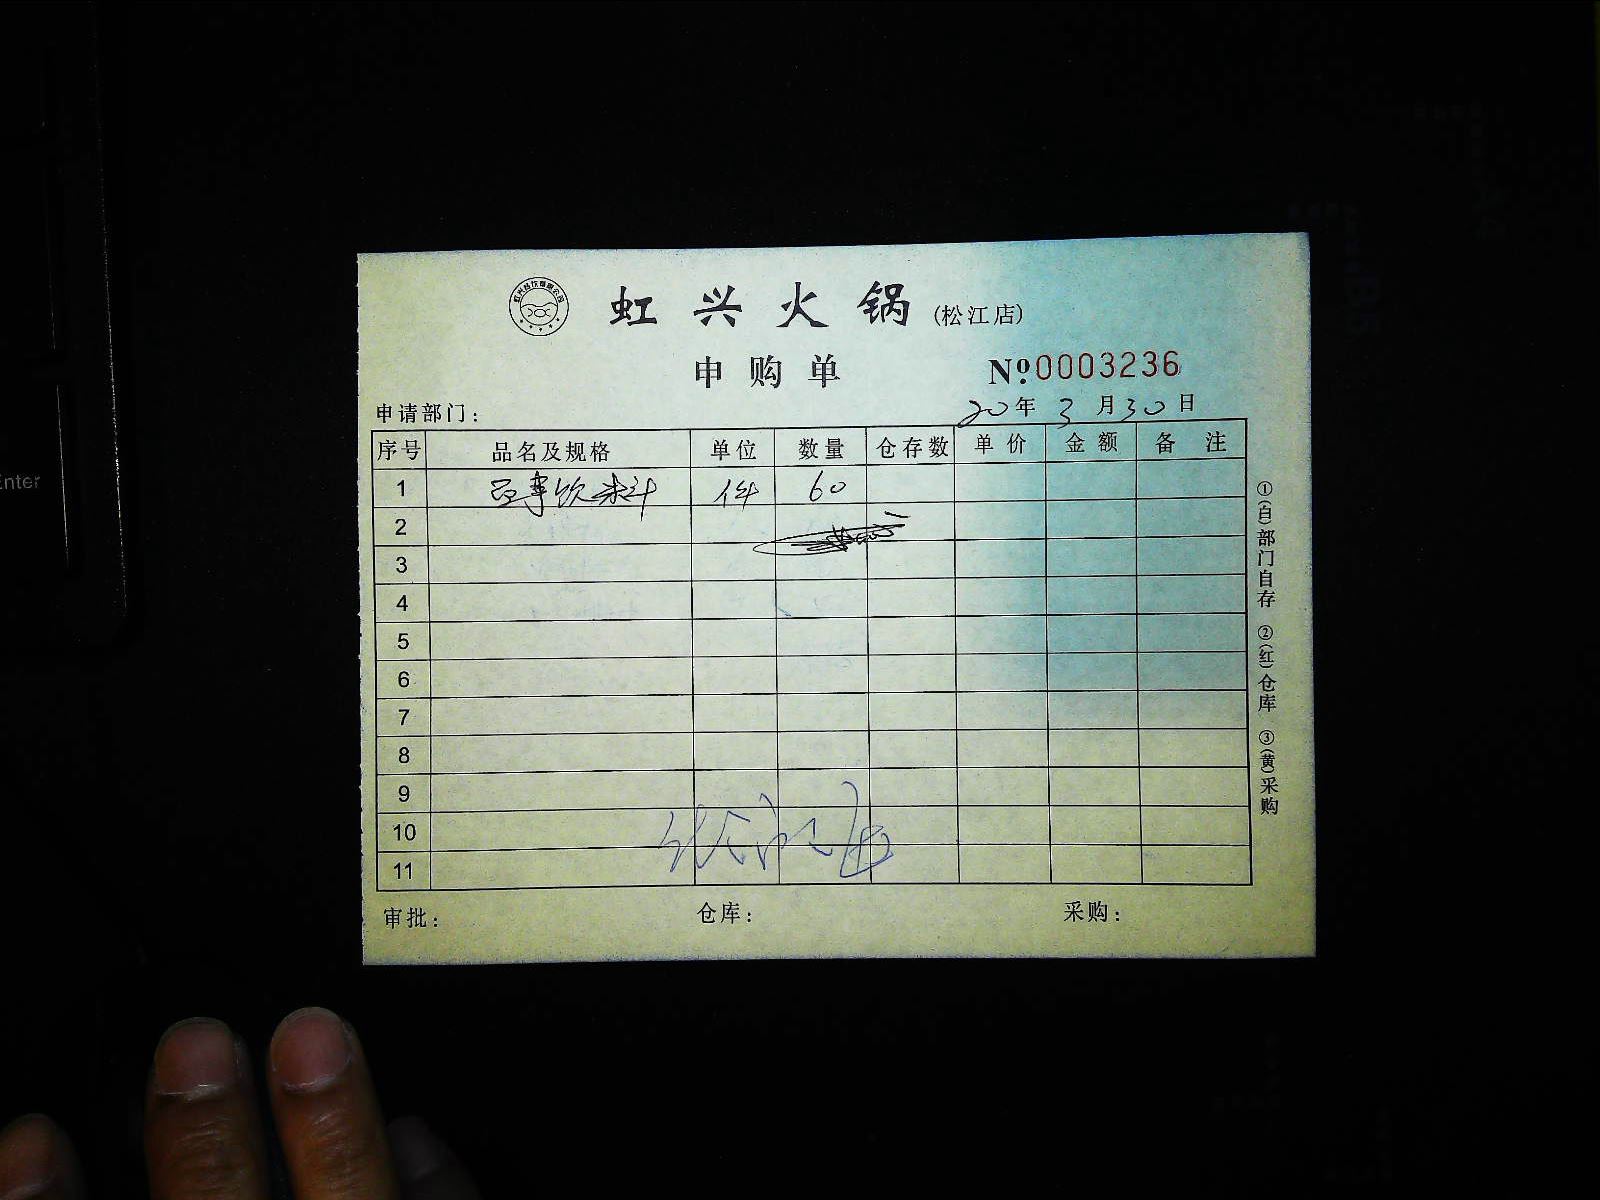 虹兴火锅(松江店)
申购单 №0003236
申请部门: 20年3月30日
序号 品名及规格 单位 数量 仓存数 单价 金额 备注
1 百事饮料 件 60
2
3
4
5
6
7
8
9
10
11
审批: 仓库: 采购:
①(白)部门自存 ②(红)仓库 ③(黄)采购
Enter